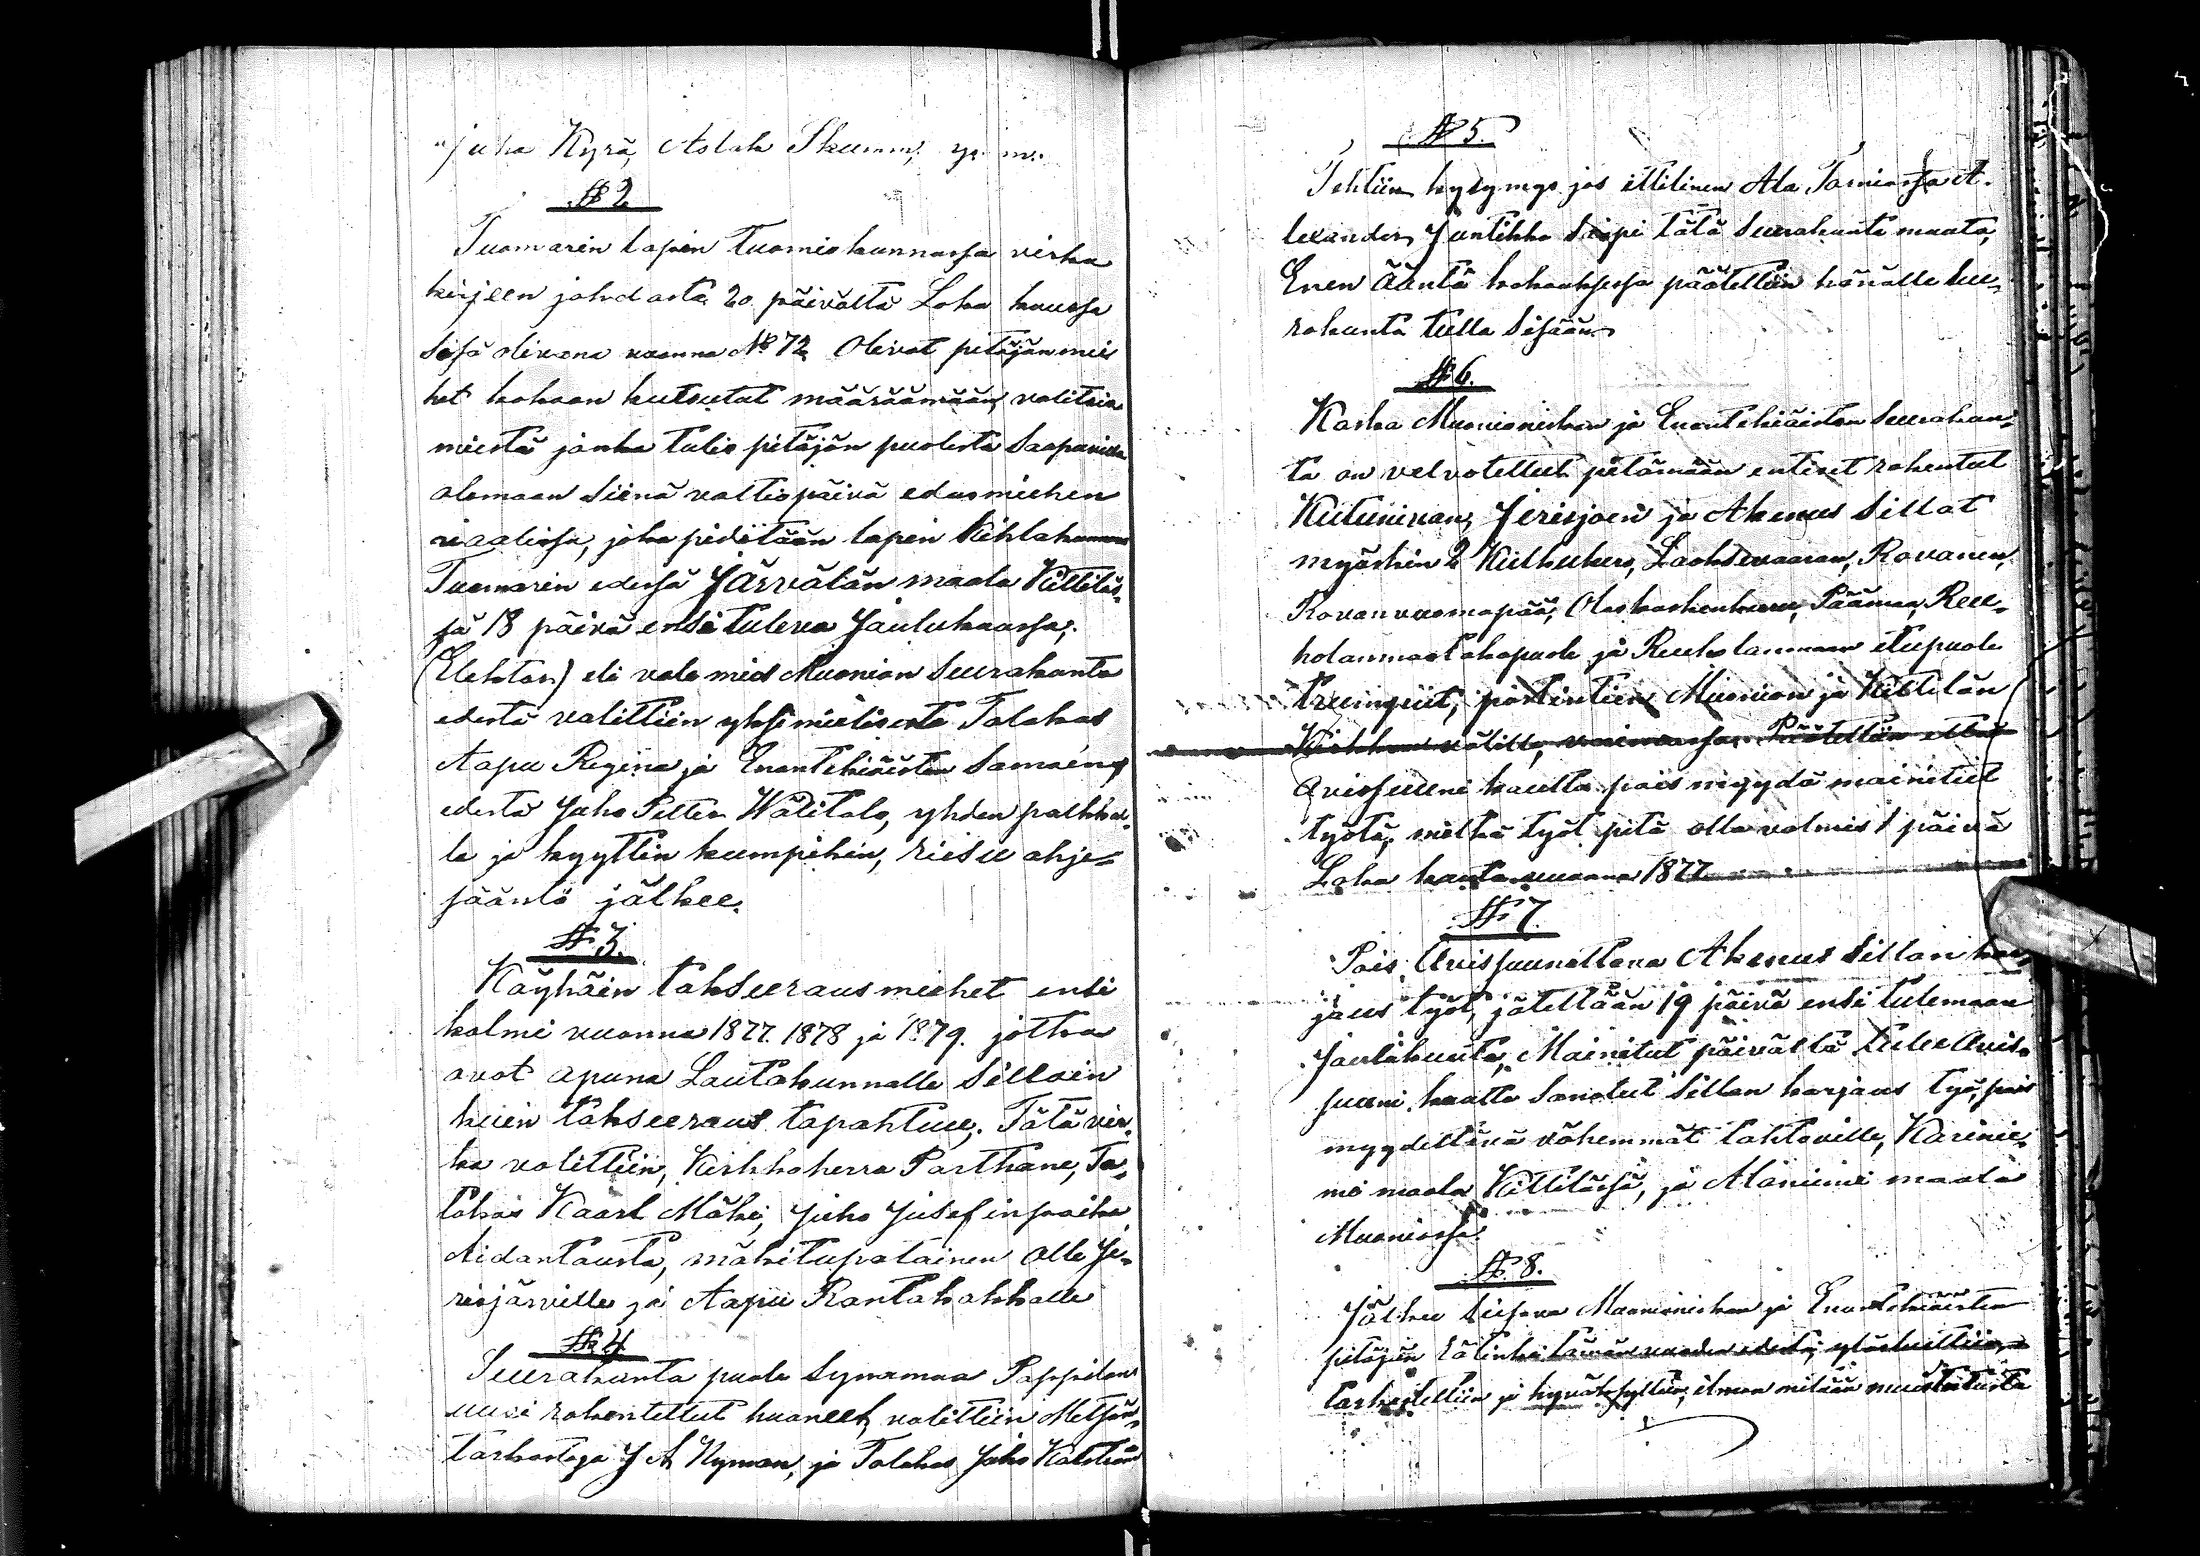 Juha Kyrö, Aslak Skumm, y. m.
§ 2
Tuomarin lapin tuomiokunnassa virka
kirjeen johdosta 20 päivältä Loka kuussa
sisä olevana vuonna No 72 Olivat pitäjän mie
het kokoon kutsutut määräämään valitsia
miestä jonka tulis pitäjän puolesta Saapuvilla
olemaan siinä valtiopäivä edusmiehen
vaalissa, joka pidetään lapin Kihlakunnan
Tuomarin edessä Järvälän maala Kittiläs-
sä 18 päivä ensi tuleva Joulukuussa,
(Elektor) eli vale mies Muonion Seurakunta
edestä valittiin yksimielisesti Talokas
Aapu Regina ja Enontekiäisten Samaéng
edestä Juho Petter Wälitalo, yhden palkka-
la ja kyytin kumpikin, riisu ohje-
sääntö jälkee.
§ 3.
Käyhäin takseeraus miehet ensi
kolmi vuonna 1877. 1878 ja 1879. jotka
ovat apuna Lautakunnalle Silloin
kuin takseeraus tapahtuu. Tätä vir-
ka valittiin, Kirkkoherra Parthane, Ta-
lokas Kaarl Mäki, Juho Jusefinpoika
Aidantausta, mäkitupalainen Olle Je-
risjärville ja Aapu Rantakokkalle
§ 4
Seurakunta puole Synamaa Pappilan
uusi rakentellut huoneet, valittiin Metsän-
tarkastaja J A Nyman, ja Talokas Juho Kalström
§ 5.
Tehtiin kysymys jos ittilinen Ala Torniossa A-
lexander Juntikka Siopi tätä Seurakunta maata,
Enen ääntä kokouksessa päätettiin hänälle seu-
rakunta tulla Sisään.
§ 6.
Koska Muonioniskan ja Enontekiäisten Seurakun-
ta on velvotellut pitämään entiset rakentut
Kutunivan, Jerisjoen ja Akenus Sillat
myöskin 2 Kulkukuru, Laoksevaaran, Rovanen,
Rovanvuomapää, Olaskoskenkuru, Päämaa, Ruu-
holanmaatakapuole ja Ruuholanmaan etupuole
truinguit, Muonion ja Kittilän
Kirkkoin välillä, Päätettiin että
Avissuuni kautta pois myydä mainitut
työtä, mitkä työt pitä olla valmis 1 päivä
Loka kuuta vuonna 1877
§ 7.
Pois Avissuunattava Akenus Sillan kor-
jaus työt, jätettään 19 päivä ensi tulemaan
Joulukuuta, Mainitut päivältä tulee Avis-
suuni kautta Sanotut Sillan korjaus työ, pois
myydettävä vähemmät tahtoville, Karinie-
mi maala Kittilässä, ja Alaniemi maala
Muoniossa.
§ 8.
Jälkee Muonioniskan ja Enontekiäisten
pitäjän Rätinki tämän vuoden edestä,
tarkastettiin ja hyväksyttiin, ilman mitään muistutusta